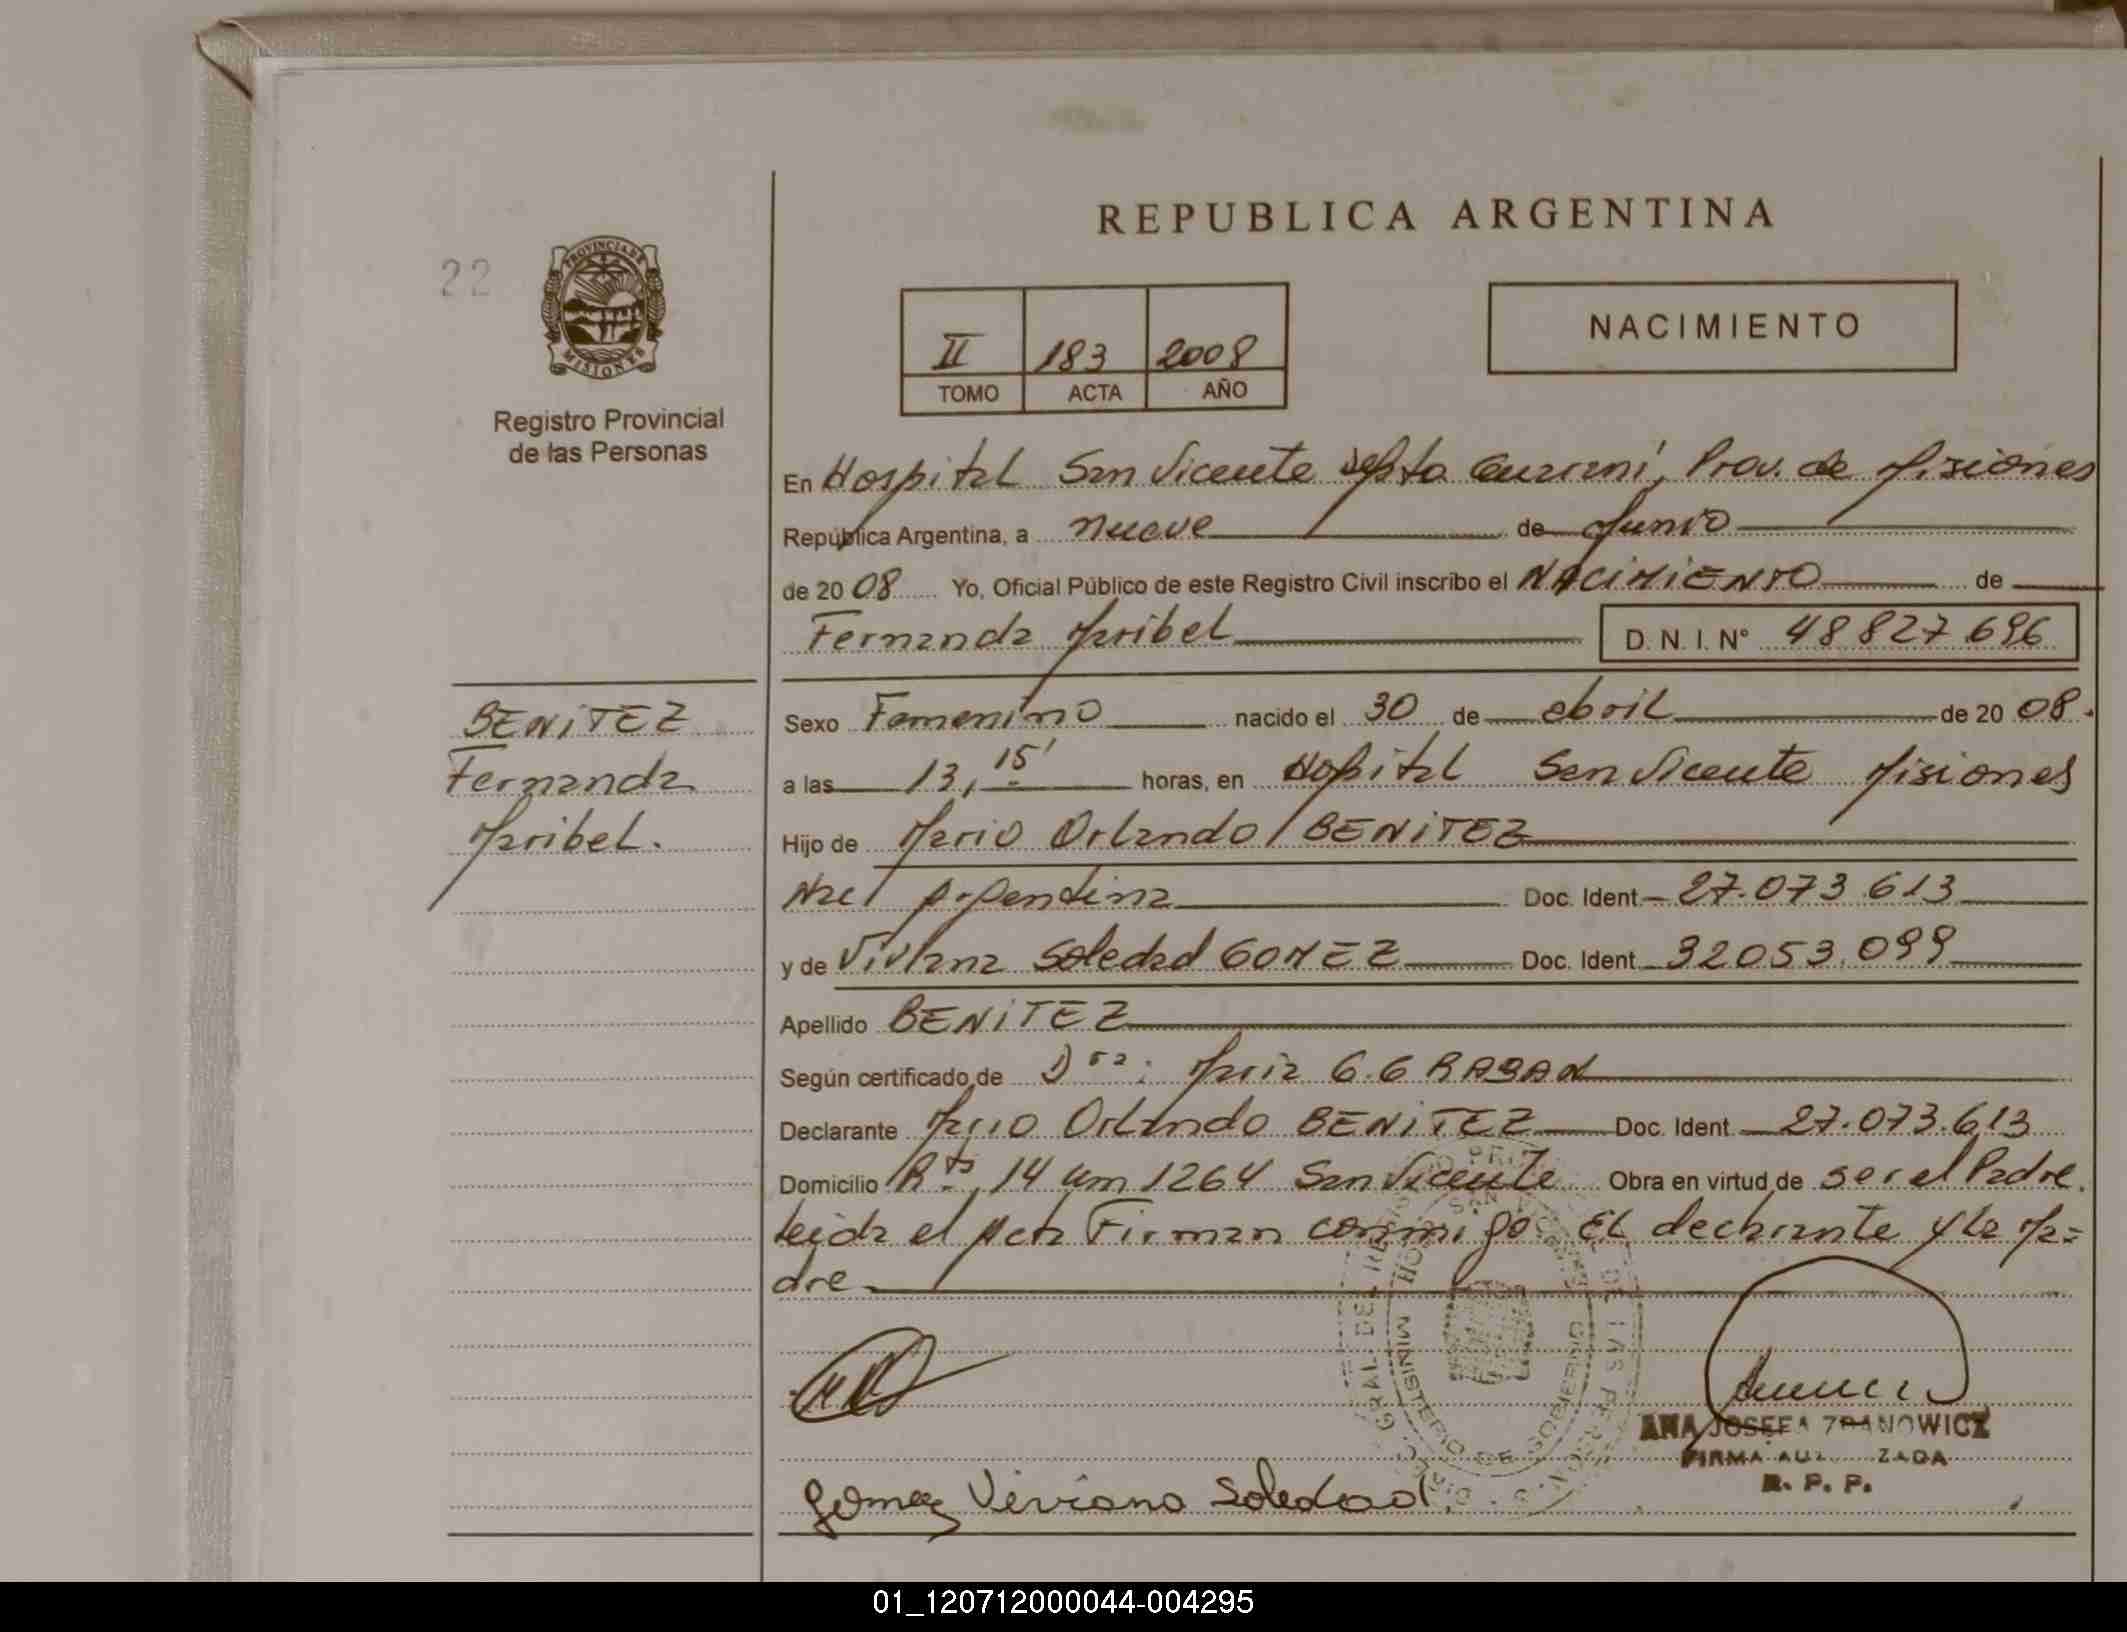 REPUBLICA ARGENTINA
22
PROVINCIA DE
MISIONES
Registro Provincial
de las Personas
II 183 2008
TOMO ACTA AÑO
NACIMIENTO
En Hospital San Vicente Depto Guarani, Prov. de Misiones
República Argentina, a nueve de Junio
de 20 08 Yo, Oficial Público de este Registro Civil inscribo el NACIMIENTO de
Fernanda Maribel D. N. I. N° 48827696
BENITEZ
Fernanda
Maribel.
Sexo Femenino nacido el 30 de abril de 20 08.
a las 13,15' horas, en Hospital San Vicente Misiones
Hijo de Mario Orlando BENITEZ
Nac Argentina Doc. Ident 27.073.613
y de Viviana Soledad GOMEZ Doc. Ident 32053.099
Apellido BENITEZ
Según certificado de Dra: Maria G.G RABAN
Declarante Mario Orlando BENITEZ Doc. Ident 27.073.613
Domicilio Rta 14 Km 1264 San Vicente Obra en virtud de ser el Padre.
Leida el Acta Firman conmigo EL declarante y la Ma=
dre
MINISTERIO DE GOBIERNO
ANA JOSEFA ZDANOWICZ
FIRMA AUTORIZADA
R. P. P.
Gomez Viviana Soledad
01_120712000044-004295